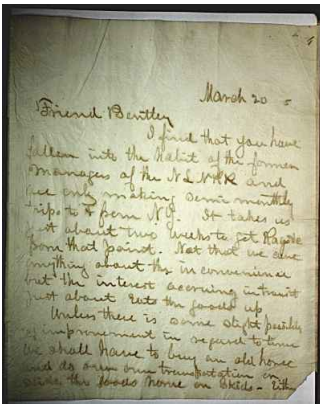 March 20
Friend Bentley
I find that you have
fallen into the habit of the former
managers of the N L N RR and
are only making semi monthly
trips to & from N.Y. It takes us
just about two weeks to get Goods
from that point. Not that we care
anything about the inconvenience
but the interest accruing in transit
just about eats the goods up
Unless there is some slight possibly
of improvement in regard to time
we shall have to buy an old horse
and do our own transportation or
slide the goods home on skids -